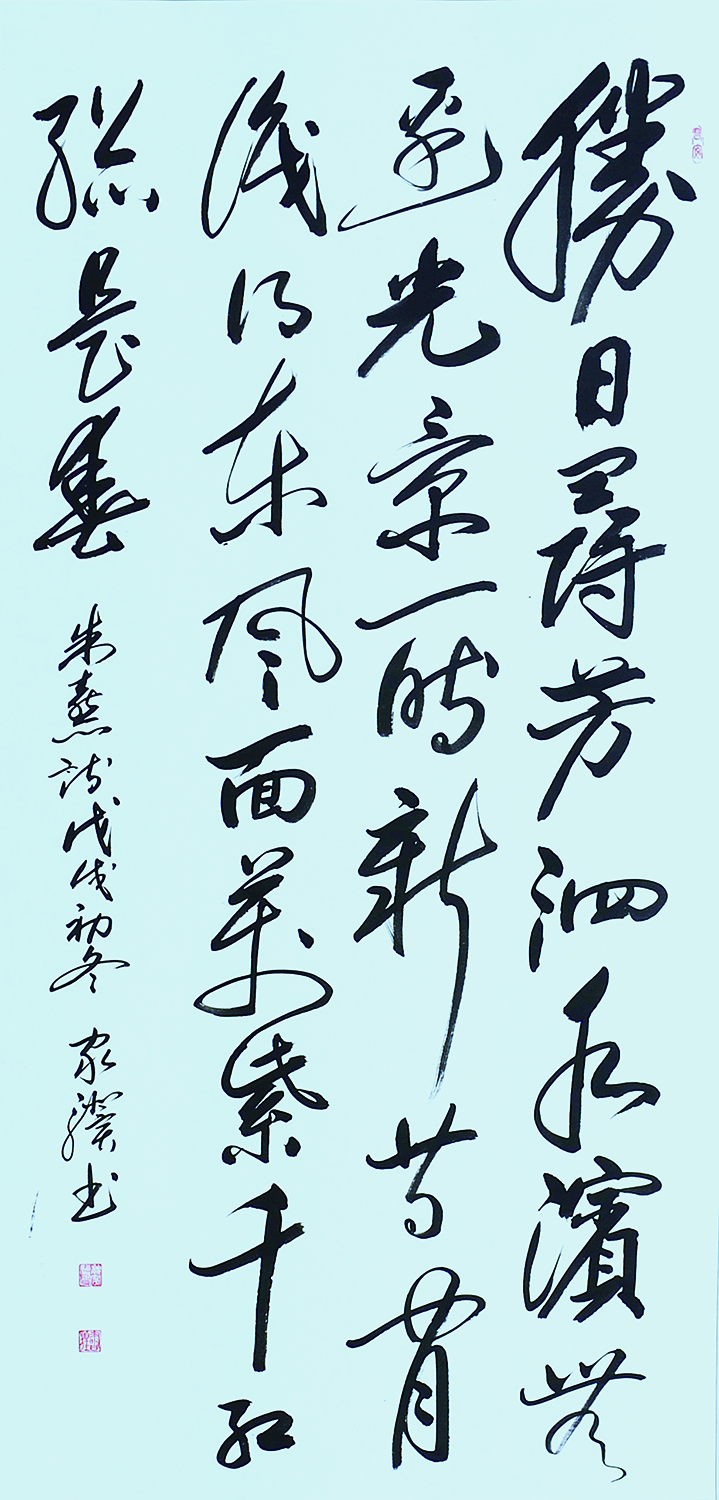 勝日尋芳泗水濱無
邊光景一時新等閒
識得東風面萬紫千紅
總是春
朱熹詩戊戌初冬 家書